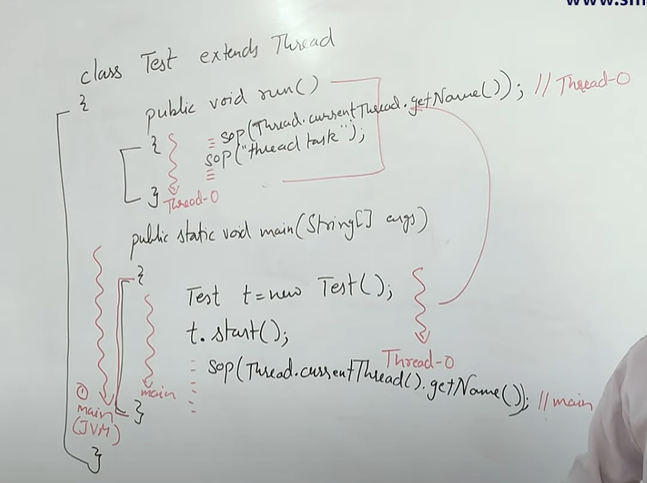 class Test extends Thread
{
public void run()
{
sop(Thread.currentThread.getName()); // Thread-0
sop("thread task");
} Thread-0
public static void main(String[] args)
{
Test t=new Test();
t.start();
Thread-0
sop(Thread.currentThread().getName()); //main
main
}
① main
(JVM)
}